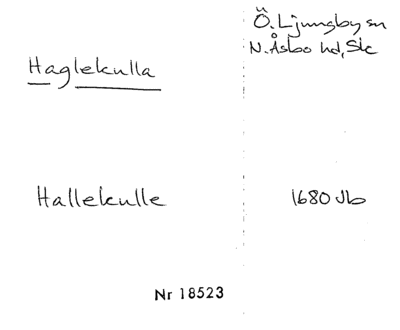 Ö. Ljungby sn
N. Åsbo hd, Sk
Haglekulla
Hallekulle
1680 Jb
Nr 18523